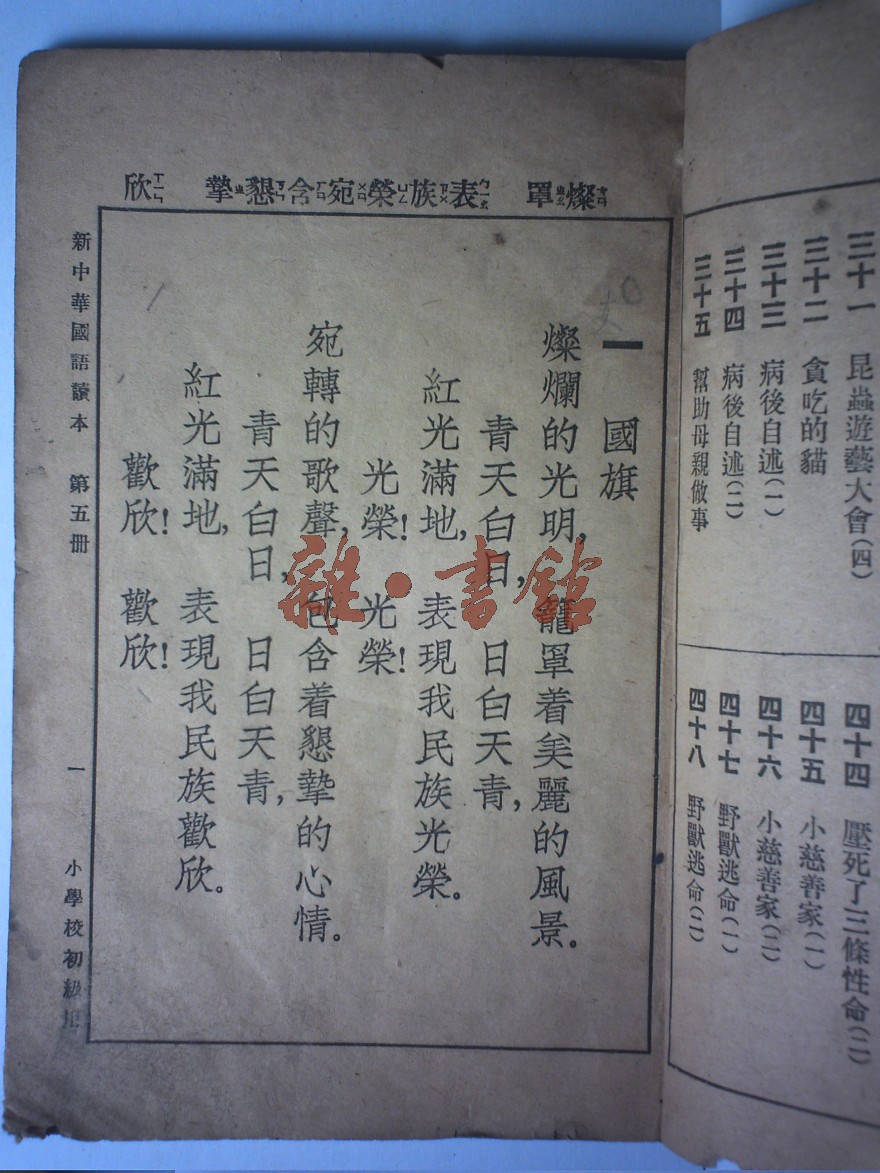 三十一 昆蟲遊藝大會(四)
三十二 貪吃的貓
三十三 病後自述(一)
三十四 病後自述(二)
三十五 幫助母親做事
四十四 壓死了三條性命(二)
四十五 小慈善家(一)
四十六 小慈善家(二)
四十七 野獸逃命(一)
四十八 野獸逃命(二)
燦ㄘㄢ 罩ㄓㄠ 表ㄅㄧㄠ 族ㄗㄨ 榮ㄩㄥ 宛ㄨㄢ 含ㄏㄢ 懇ㄎㄣ 摯ㄓ 欣ㄒㄧㄣ
一 國旗
燦爛的光明,籠罩着美麗的風景。
青天白日, 日白天青,
紅光滿地, 表現我民族光榮。
光榮! 光榮!
宛轉的歌聲,包含着懇摯的心情。
青天白日, 日白天青,
紅光滿地, 表現我民族歡欣。
歡欣! 歡欣!
新中華國語讀本 第五冊 一 小學校初級用
雜·書館